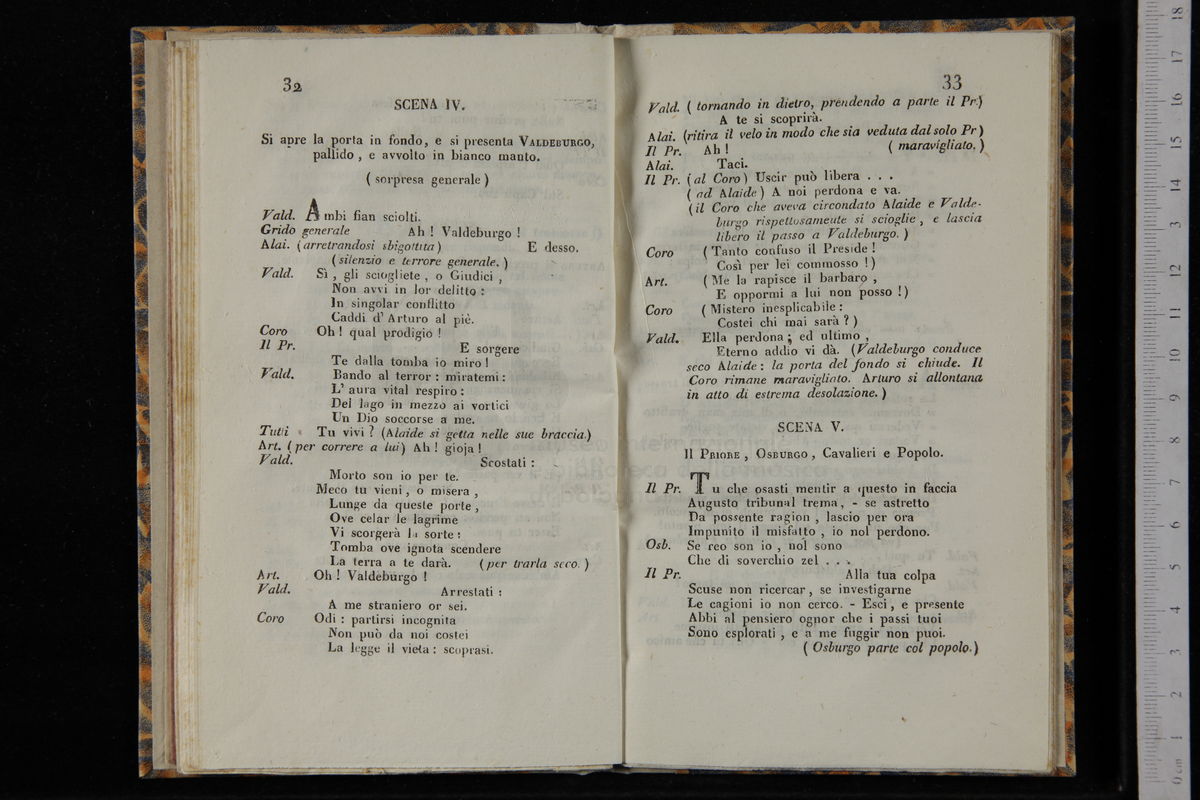 32
SCENA IV.
Si apre la porta in fondo, e si presenta VALDEBURGO,
pallido, e avvolto in bianco manto.
( sorpresa generale )
Vald. Ambi fian sciolti.
Grido generale Ah ! Valdeburgo !
Alai. (arretrandosi sbigottita) E desso.
(silenzio e terrore generale. )
Vald. Sì, gli sciogliete, o Giudici,
Non avvi in lor delitto :
In singolar conflitto
Caddi d' Arturo al piè.
Coro Oh ! qual prodigio !
Il Pr. E sorgere
Te dalla tomba io miro !
Vald. Bando al terror : miratemi :
L' aura vital respiro :
Del lago in mezzo ai vortici
Un Dio soccorse a me.
Tutti Tu vivi ? (Alaide si getta nelle sue braccia.)
Art. (per correre a lui) Ah ! gioja !
Vald. Scostati :
Morto son io per te.
Meco tu vieni, o misera,
Lunge da queste porte,
Ove celar le lagrime
Vi scorgerà la sorte :
Tomba ove ignota scendere
La terra a te darà. (per trarla seco. )
Art. Oh ! Valdeburgo !
Vald. Arrestati :
A me straniero or sei.
Coro Odi : partirsi incognita
Non può da noi costei
La legge il vieta : scoprasi.
33
Vald. ( tornando in dietro, prendendo a parte il Pr.)
A te si scoprirà.
Alai. (ritira il velo in modo che sia veduta dal solo Pr)
Il Pr. Ah ! ( maravigliato. )
Alai. Taci.
Il Pr. (al Coro) Uscir può libera . . .
( ad Alaide ) A noi perdona e va.
(il Coro che aveva circondato Alaide e Valde-
burgo rispettosamente si scioglie, e lascia
libero il passo a Valdeburgo. )
Coro (Tanto confuso il Preside !
Così per lei commosso !)
Art. (Me la rapisce il barbaro,
E oppormi a lui non posso !)
Coro (Mistero inesplicabile :
Costei chi mai sarà ? )
Vald. Ella perdona ; ed ultimo,
Eterno addio vi dà. (Valdeburgo conduce
seco Alaide : la porta del fondo si chiude. Il
Coro rimane maravigliato. Arturo si allontana
in atto di estrema desolazione. )
SCENA V.
Il PRIORE, OSBURGO, Cavalieri e Popolo.
Il Pr. Tu che osasti mentir a questo in faccia
Augusto tribunal trema, - se astretto
Da possente ragion, lascio per ora
Impunito il misfatto, io nol perdono.
Osb. Se reo son io, nol sono
Che di soverchio zel . . .
Il Pr. Alla tua colpa
Scuse non ricercar, se investigarne
Le cagioni io non cerco. - Esci, e presente
Abbi al pensiero ognor che i passi tuoi
Sono esplorati, e a me fuggir non puoi.
( Osburgo parte col popolo.)
0 cm 1 2 3 4 5 6 7 8 9 10 11 12 13 14 15 16 17 18